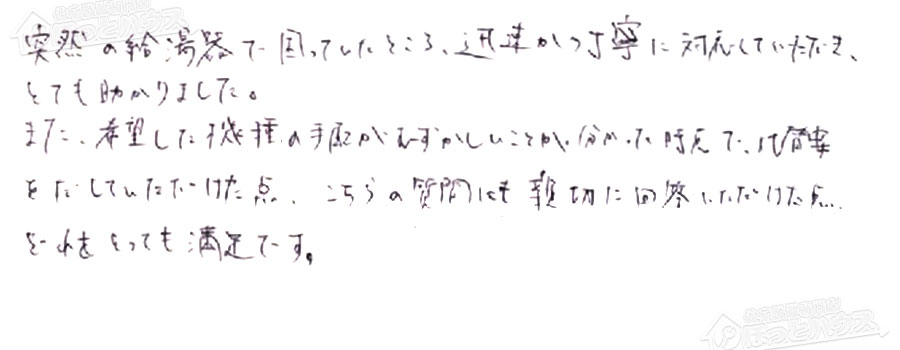 突然の給湯器で困っていたところ、迅速かつ丁寧に対応していただき、
とても助かりました。
また、希望した機種の手配がむずかしいことが分かった時点で、代替案
をだしていただけた点、こちらの質問にも親切に回答いただけた点、
をれもとっても満足です。
ほっとハウス
ほっとハウス